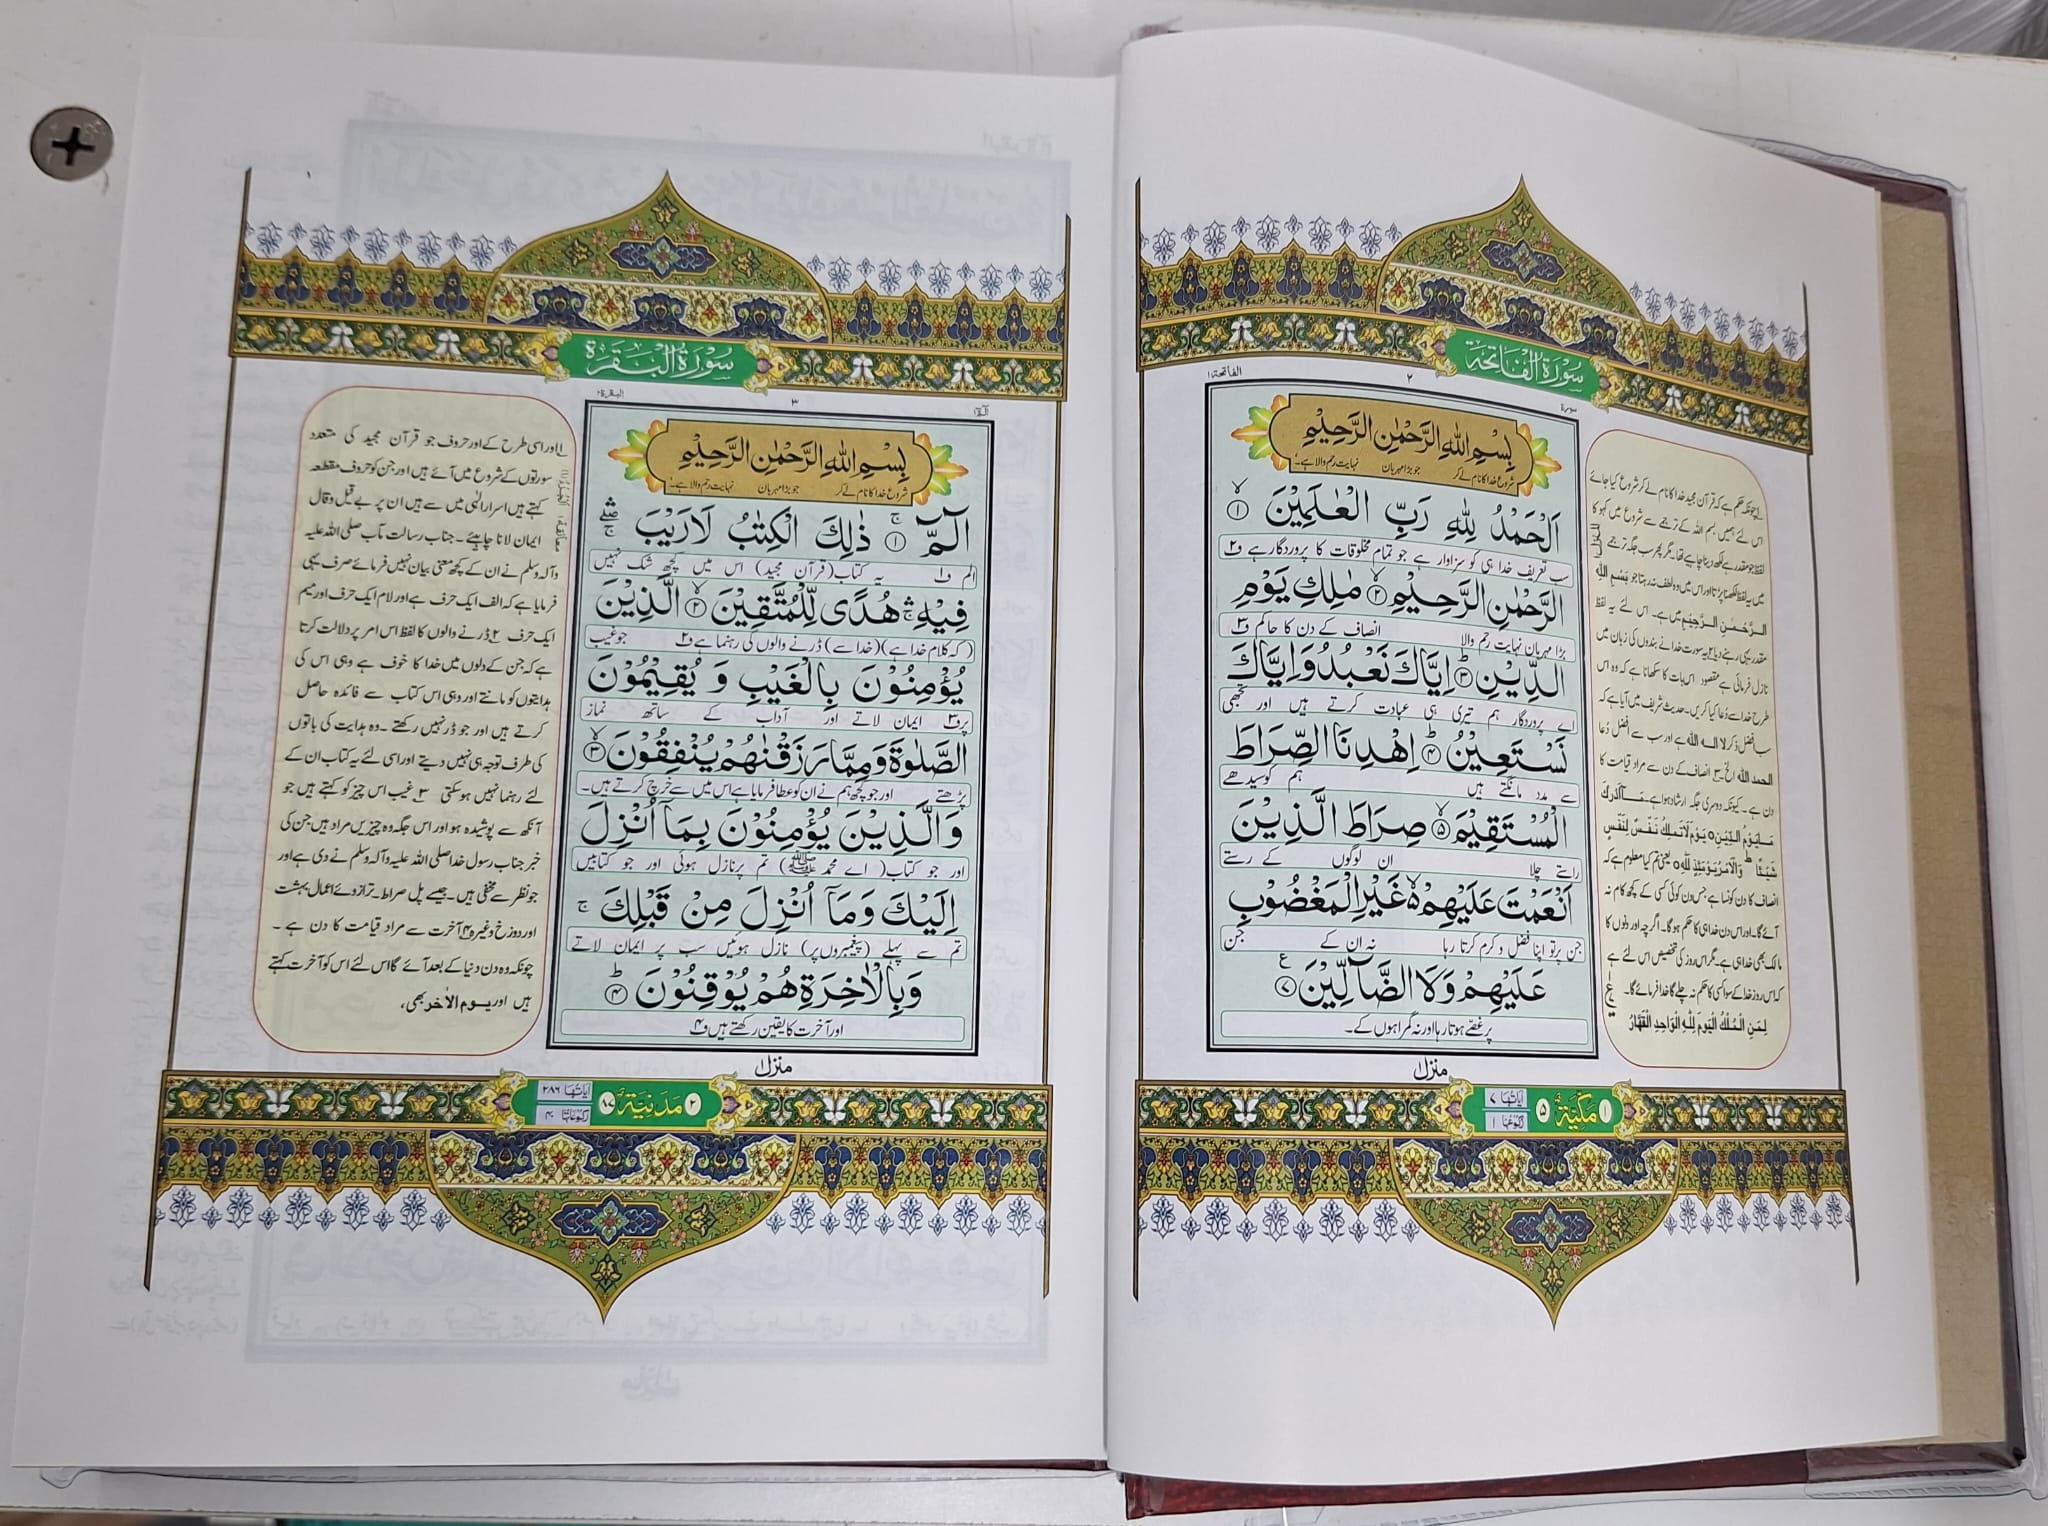 سُوْرَةُ الْفَاتِحَة
سورة
٢
الفاتحة ١
بِسْمِ اللّٰهِ الرَّحْمٰنِ الرَّحِيْمِ
شروع خدا کا نام لے کر جو بڑا مہربان نہایت رحم والا ہے۔
اَلْحَمْدُ لِلّٰهِ رَبِّ الْعٰلَمِيْنَ ۙ‏﴿۱﴾
سب تعریف خدا ہی کو سزاوار ہے جو تمام مخلوقات کا پروردگار ہے ف۲
الرَّحْمٰنِ الرَّحِيْمِ ۙ‏﴿۲﴾ مٰلِكِ يَوْمِ
بڑا مہربان نہایت رحم والا انصاف کے دن کا حاکم ف۳
الدِّيْنِ ؕ‏﴿۳﴾ اِيَّاكَ نَعْبُدُ وَاِيَّاكَ
اے پروردگار ہم تیری ہی عبادت کرتے ہیں اور تجھی
نَسْتَعِيْنُ ؕ‏﴿۴﴾ اِهْدِنَا الصِّرَاطَ
سے مدد مانگتے ہیں ہم کو سیدھے
الْمُسْتَقِيْمَ ۙ‏﴿۵﴾ صِرَاطَ الَّذِيْنَ
راستے چلا ان لوگوں کے رستے
اَنْعَمْتَ عَلَيْهِمْ ۙ۬ۙ‏﴿۶﴾ غَيْرِ الْمَغْضُوْبِ
جن پر تو اپنا فضل و کرم کرتا رہا نہ ان کے جن
عَلَيْهِمْ وَلَا الضَّآلِّيْنَ ‏﴿۷﴾ ع
پر غصے ہوتا رہا اور نہ گمراہوں کے۔
منزل ١
۱ چونکہ حکم ہے کہ قرآن مجید خدا کا نام لے کر شروع کیا جائے
اس لئے ہمیں بسم اللہ کے ترجمے سے شروع میں کہو کا
لفظ جو مقدر ہے لکھ دینا چاہیے تھا۔ مگر پھر سب جگہ ترجمے
میں یہ لفظ لکھنا پڑتا اور اس میں وہ لطف نہ رہتا جو بسم اللہ
الرحمن الرحیم میں ہے۔ اس لئے یہ لفظ
مقدر ہی رہنے دیا ۲ یہ سورت خدا نے بندوں کی زبان میں
نازل فرمائی ہے مقصود اس بات کا سکھانا ہے کہ وہ اس
طرح خدا سے دُعا کیا کریں۔ حدیث شریف میں آیا ہے کہ
سب افضل ذکر لا الہ اللہ ہے اور سب سے افضل دُعا
الحمد للہ الخ۔ ۳ انصاف کے دن سے مراد قیامت کا
دن ہے۔ کیونکہ دوسری جگہ ارشاد ہوا ہے۔ مَآ اَدْرٰكَ
مَا يَوْمُ الدِّيْنِ ۰ يَوْمَ لَا تَمْلِكُ نَفْسٌ لِّنَفْسٍ
شَيْئًا ؕ وَالْاَمْرُ يَوْمَئِذٍ لِّلّٰهِ ۰ یعنی تم کیا معلوم ہے کہ
انصاف کا دن کونسا ہے جس دن کوئی کسی کے کچھ کام نہ
آئے گا۔ اور اس دن خدا ہی کا حکم ہوگا۔ اگرچہ اور دنوں کا
مالک بھی خدا ہی ہے۔ مگر اس روز کی تخصیص اس لئے ہے
کہ اس روز خدا کے سوا کسی کا حکم نہ چلے گا خدا فرمائے گا۔
لِمَنِ الْمُلْكُ الْيَوْمَ لِلّٰهِ الْوَاحِدِ الْقَهَّارُ
۱ مَكِّيَّة ۵
اٰيَاتُهَا ۷
رُكُوْعُهَا ۱
سُوْرَةُ الْبَقَرَة
٣
البقرة ٢
بِسْمِ اللّٰهِ الرَّحْمٰنِ الرَّحِيْمِ
شروع خدا کا نام لے کر جو بڑا مہربان نہایت رحم والا ہے۔
الٓمّٓ ۚ‏﴿۱﴾ ذٰلِكَ الْكِتٰبُ لَا رَيْبَ ۖۛۚ
الم ف۱ یہ کتاب (قرآن مجید) اس میں کچھ شک نہیں
فِيْهِ ۛۚ هُدًى لِّلْمُتَّقِيْنَ ۙ‏﴿۲﴾ الَّذِيْنَ
(کہ کلام خدا ہے) (خدا سے) ڈرنے والوں کی رہنما ہے ف۲ جو غیب
يُؤْمِنُوْنَ بِالْغَيْبِ وَ يُقِيْمُوْنَ
پر ف۳ ایمان لاتے اور آداب کے ساتھ نماز
الصَّلٰوةَ وَمِمَّا رَزَقْنٰهُمْ يُنْفِقُوْنَ ۙ‏﴿۳﴾
پڑھتے اور جو کچھ ہم نے ان کو عطا فرمایا ہے اس میں سے خرچ کرتے ہیں۔
وَالَّذِيْنَ يُؤْمِنُوْنَ بِمَآ اُنْزِلَ
اور جو کتاب (اے محمد ﷺ) تم پر نازل ہوئی اور جو کتابیں
اِلَيْكَ وَمَآ اُنْزِلَ مِنْ قَبْلِكَ ۚ
تم سے پہلے (پیغمبروں پر) نازل ہوئیں سب پر ایمان لاتے
وَبِالْاٰخِرَةِ هُمْ يُوْقِنُوْنَ ؕ‏﴿۴﴾
اور آخرت کا یقین رکھتے ہیں ف۴
منزل ١
۱ اور اسی طرح کے اور حروف جو قرآن مجید کی متعدد
سورتوں کے شروع میں آئے ہیں اور جن کو حروف مقطعہ
کہتے ہیں اسرار الٰہی میں سے ہیں ان پر بے قیل و قال
ایمان لانا چاہیئے۔ جناب رسالت مآب صلی اللہ علیہ
وآلہ وسلم نے ان کے کچھ معنی بیان نہیں فرمائے صرف یہی
فرمایا ہے کہ الف ایک حرف ہے اور لام ایک حرف اور میم
ایک حرف ۲ ڈرنے والوں کا لفظ اس امر پر دلالت کرتا
ہے کہ جن کے دلوں میں خدا کا خوف ہے وہی اس کی
ہدایتوں کو مانتے اور وہی اس کتاب سے فائدہ حاصل
کرتے ہیں اور جو ڈر نہیں رکھتے۔ وہ ہدایت کی باتوں
کی طرف توجہ ہی نہیں دیتے اور اسی لئے یہ کتاب ان کے
لئے رہنما نہیں ہو سکتی ۳ غیب اس چیز کو کہتے ہیں جو
آنکھ سے پوشیدہ ہو اور اس جگہ وہ چیزیں مراد ہیں جن کی
خبر جناب رسول خدا صلی اللہ علیہ وآلہ وسلم نے دی ہے اور
جو نظر سے مخفی ہیں۔ جیسے پل صراط۔ ترازوئے اعمال بہشت
اور دوزخ وغیرہ ۴ آخرت سے مراد قیامت کا دن ہے۔
چونکہ وہ دن دنیا کے بعد آئے گا اس لئے اس کو آخرت کہتے
ہیں اور یوم الاٰخر بھی،
۲ مَدَنِيَّة ۸۷
اٰيَاتُهَا ۲۸۶
رُكُوْعَاتُهَا ۴۰